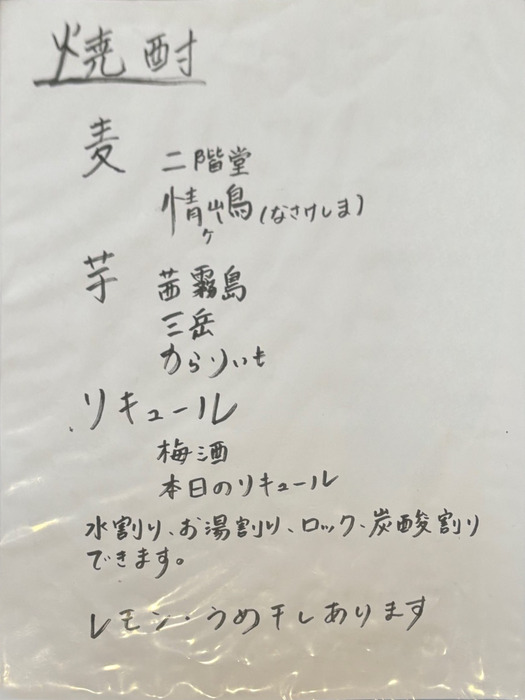 焼酎
麦 二階堂
情ヶ嶋(なさけしま)
芋 茜霧島
三岳
からりいも
リキュール
梅酒
本日のリキュール
水割り、お湯割り、ロック、炭酸割り
できます。
レモン・うめ干しあります